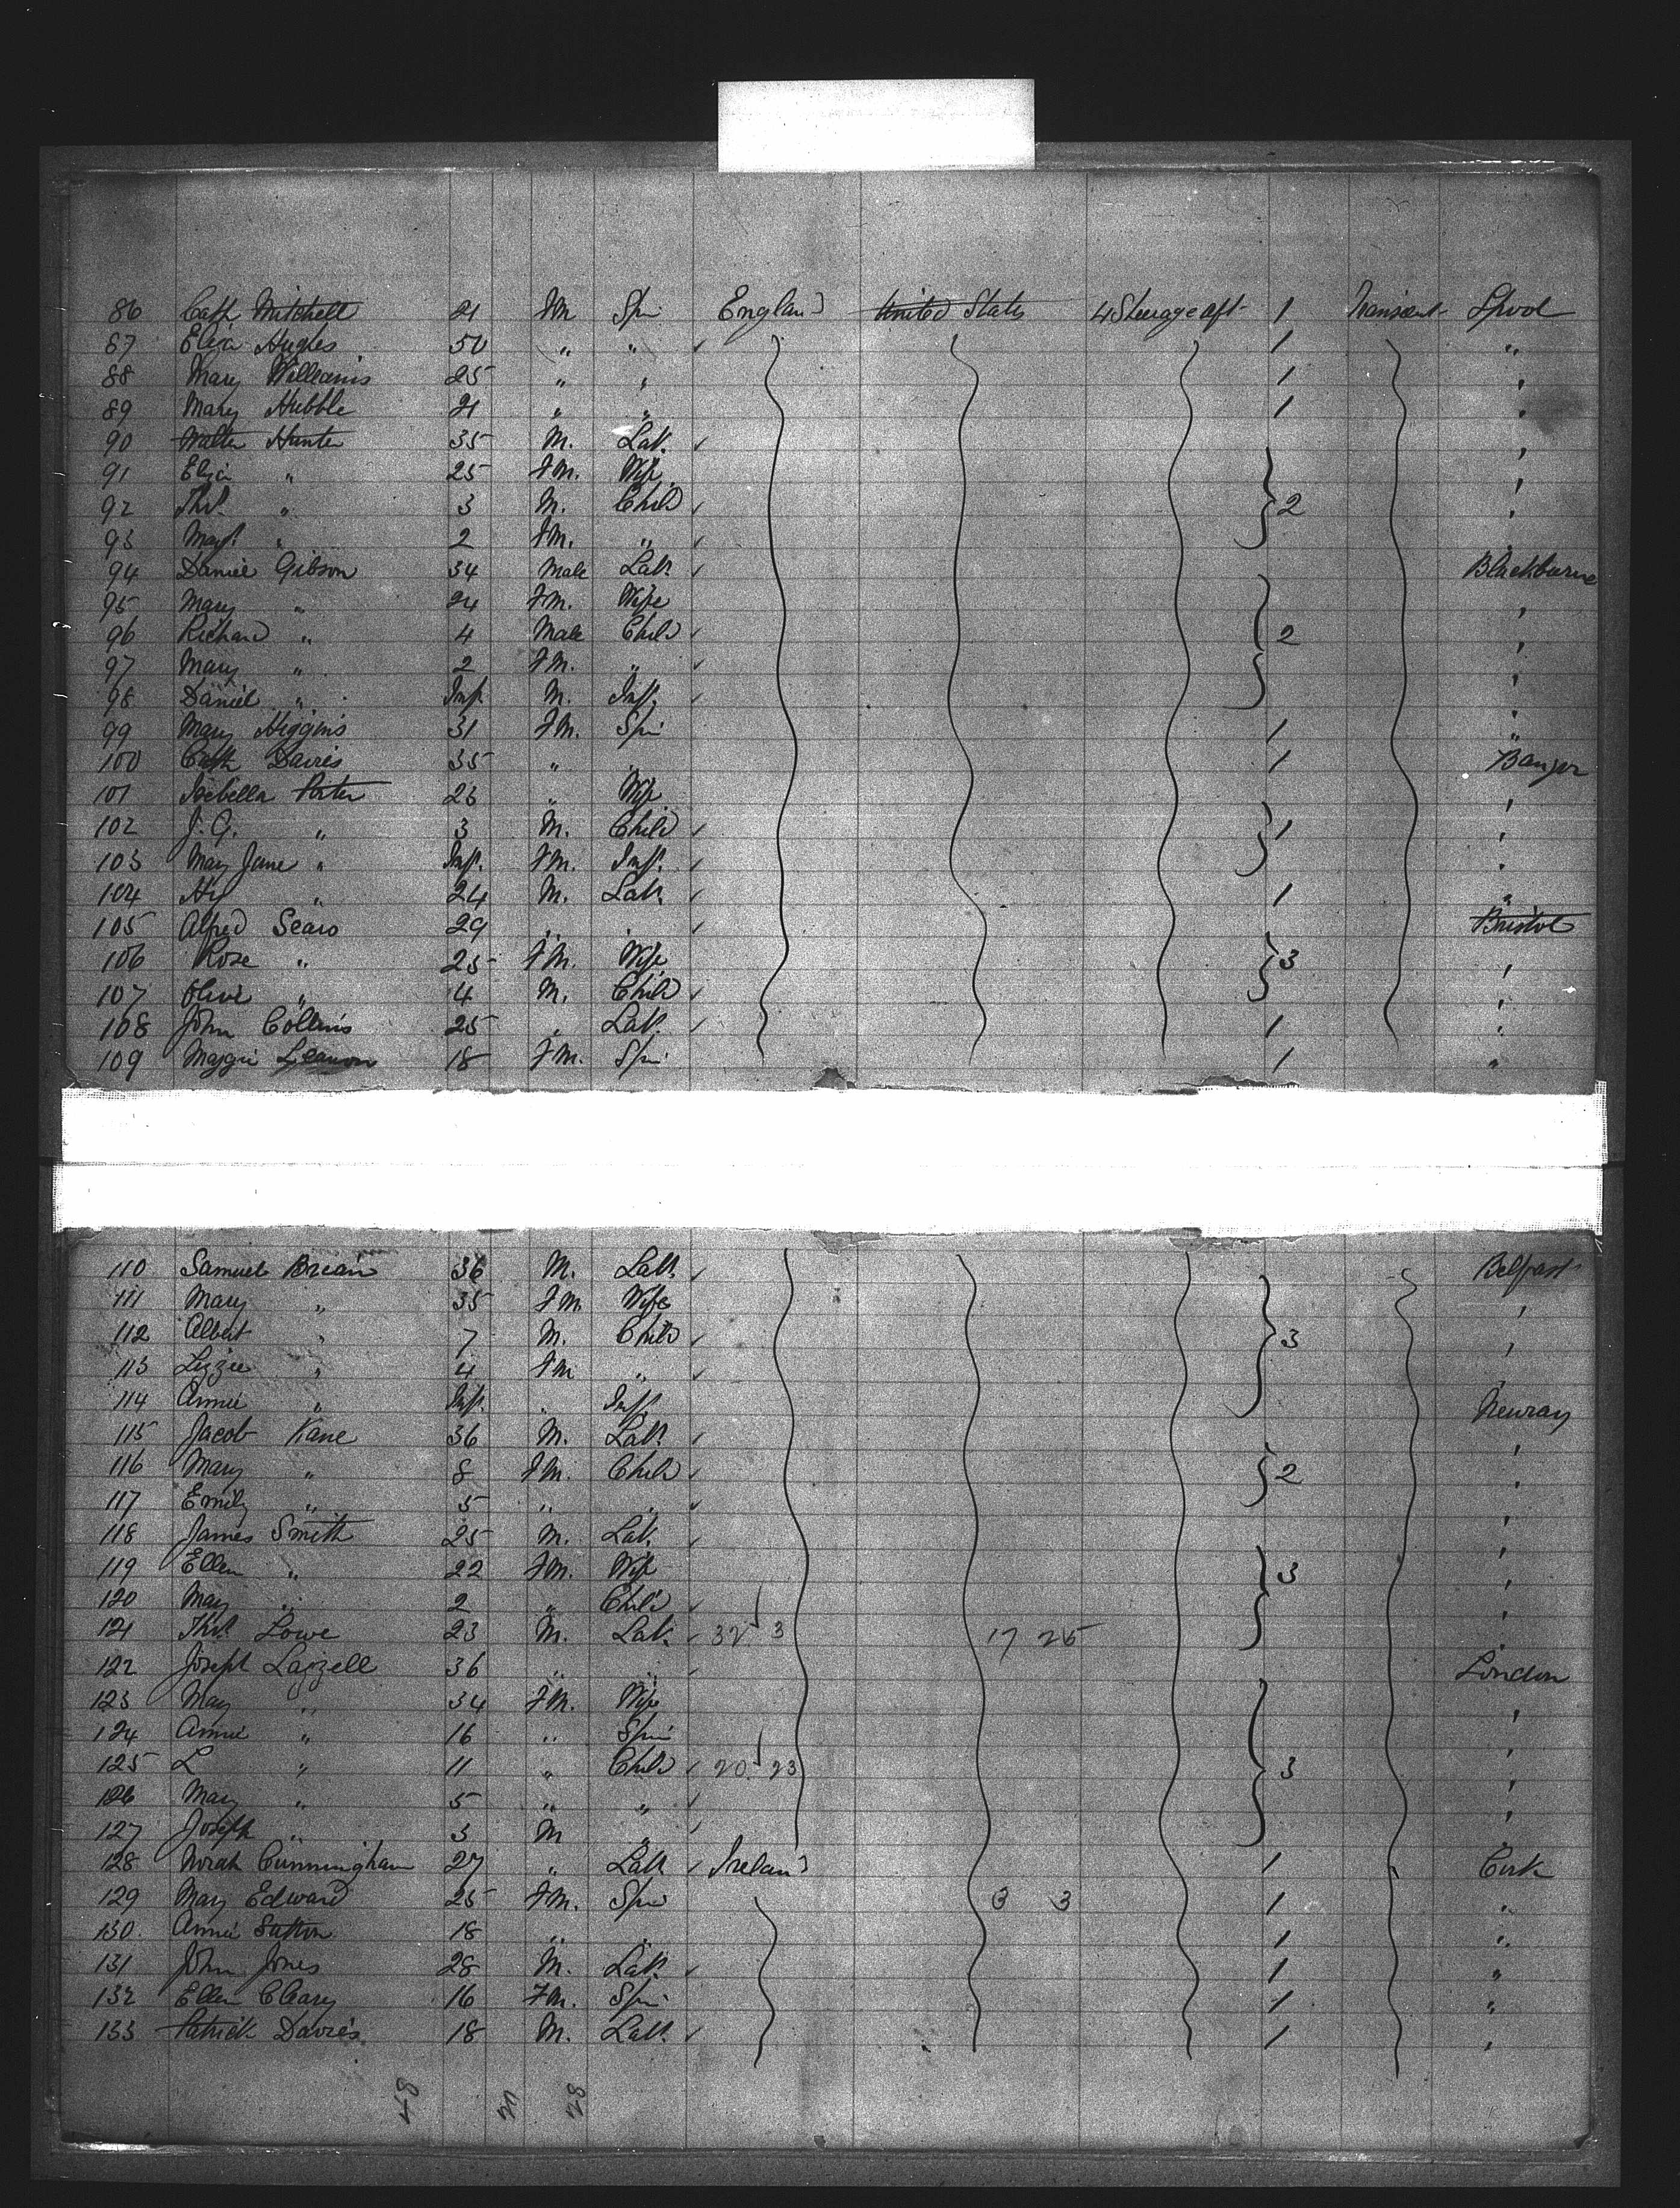 86 Cath Mitchell 21 Fm Spi England United States 4 Steerage aft 1 Transient Lpool
87 Eliza Hughes 50 " " 1 "
88 Mary Williams 25 " " 1 "
89 Mary Hubble 21 " " 1 "
90 Walter Hunter 35 M. Lab. "
91 Eliza " 25 Fm. Wife "
92 Thos. " 3 M. Child 2 "
93 Magt. " 2 Fm. " "
94 Daniel Gibson 34 Male Labr Blackburne
95 Mary " 24 Fm. Wife "
96 Richard " 4 Male Child 2 "
97 Mary " 2 Fm. " "
98 Daniel " Inf. M. Inf. "
99 Mary Higgins 31 Fm. Spi 1 "
100 Cath Davies 35 " " 1 Bangor
101 Isebella Porter 23 " Wife "
102 J. G. " 3 M. Child 1 "
103 Mary Jane " Inf. Fm. Inf. "
104 Hy " 24 M. Labr 1 "
105 Alfred Sears 29 " " Bristol
106 Rose " 25 Fm. Wife 3 "
107 Olive " 4 M. Child "
108 John Collins 25 " Lab. 1 "
109 Maggie 18 Fm. Spi 1 "
110 Samuel Brian 36 M. Labr Belfast
111 Mary " 35 Fm. Wife "
112 Albert " 7 M. Child 3 "
113 Lizzie " 4 Fm " "
114 Annie " Inf. " Inf. Newray
115 Jacob Kane 36 M. Labr "
116 Mary " 8 Fm. Child 2 "
117 Emily " 5 " " "
118 James Smith 25 M. Lab. "
119 Ellen " 22 Fm. Wife 3 "
120 May " 2 " Child "
121 Thos. Lowe 23 M. Lab. 32 3 17 25
122 Joseph Lazzell 36 " " London
123 May " 34 Fm. Wife "
124 Annie " 16 " Spi "
125 L " 11 " Child 20 23 3 "
126 Mary " 5 " " "
127 Joseph " 3 M "
128 Norah Cunningham 27 " Labr Ireland 1 Cork
129 Mary Edward 25 Fm. Spi 3 3 1 "
130. Annie Sutton 18 " " 1 "
131 John Jones 28 M. Lab. 1 "
132 Ellen Cleary 16 Fm. Spi 1 "
133 Patrick Davies 18 M. Labr 1 "